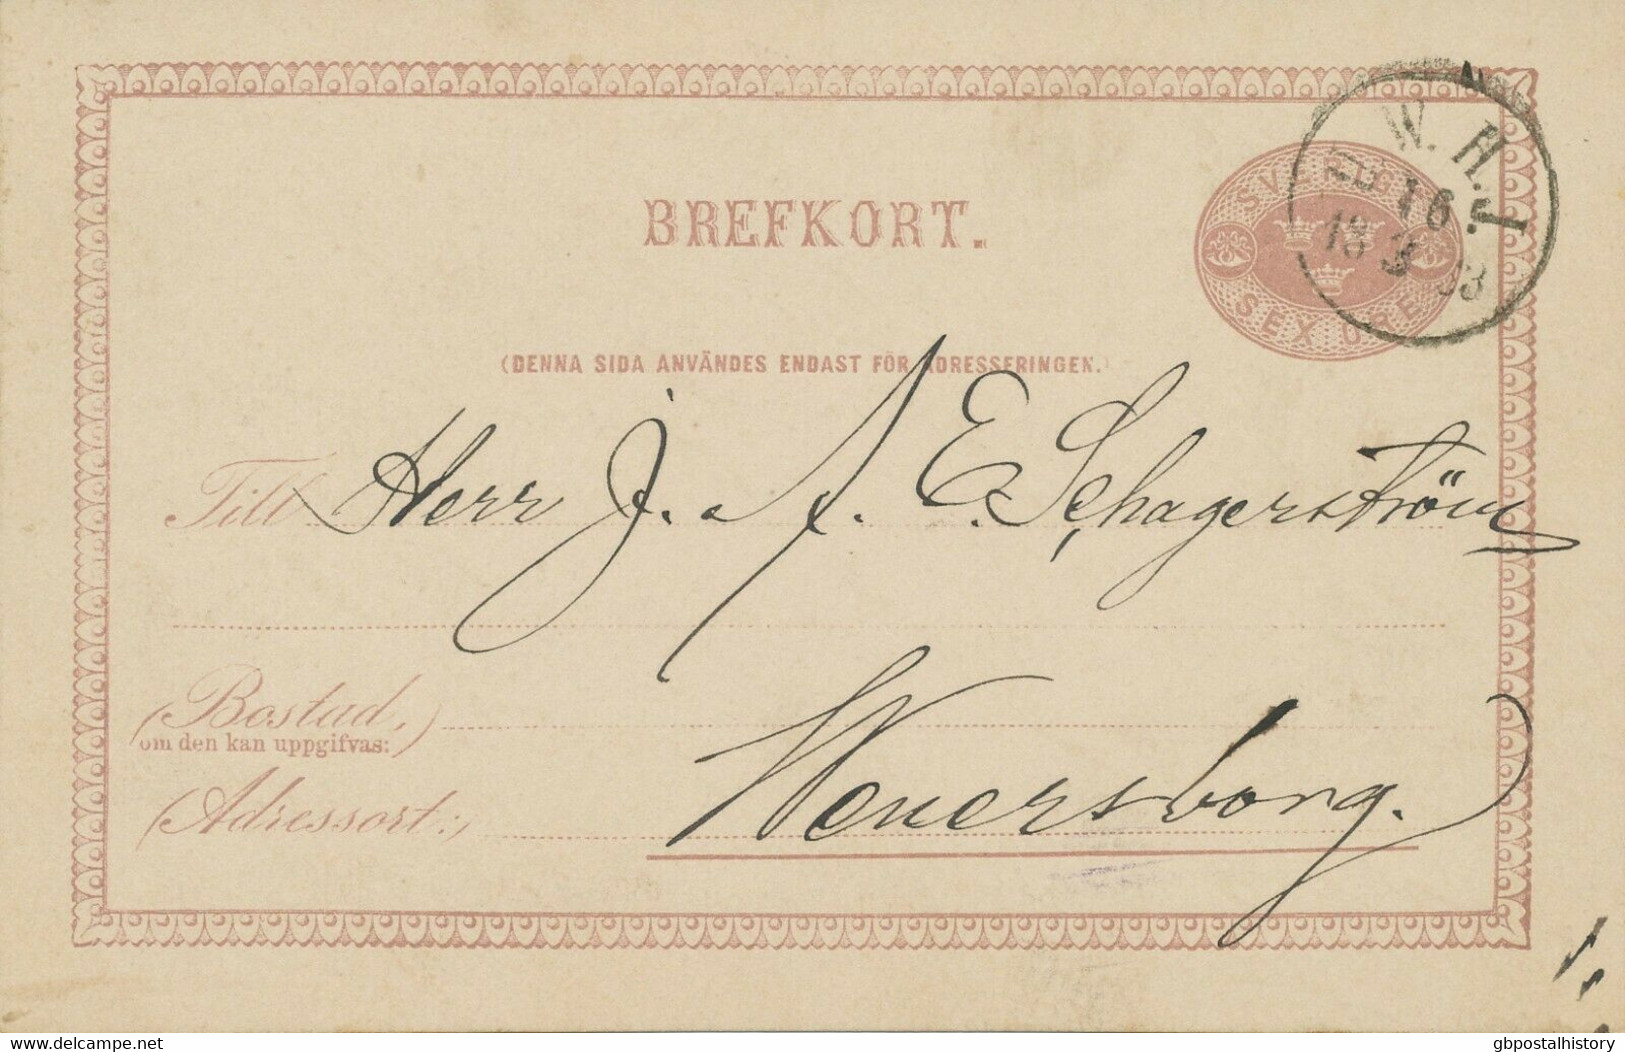 BREFKORT.
SVERIGE
SEX ÖRE
W. H. J.
16
18 3 83
(DENNA SIDA ANVÄNDES ENDAST FÖR ADRESSERINGEN.)
Till Herr J. A. E. Schagerström
(Bostad,
om den kan uppgifvas:)
(Adressort:) Wenersborg.
delcampe.net
gbpostalhistory